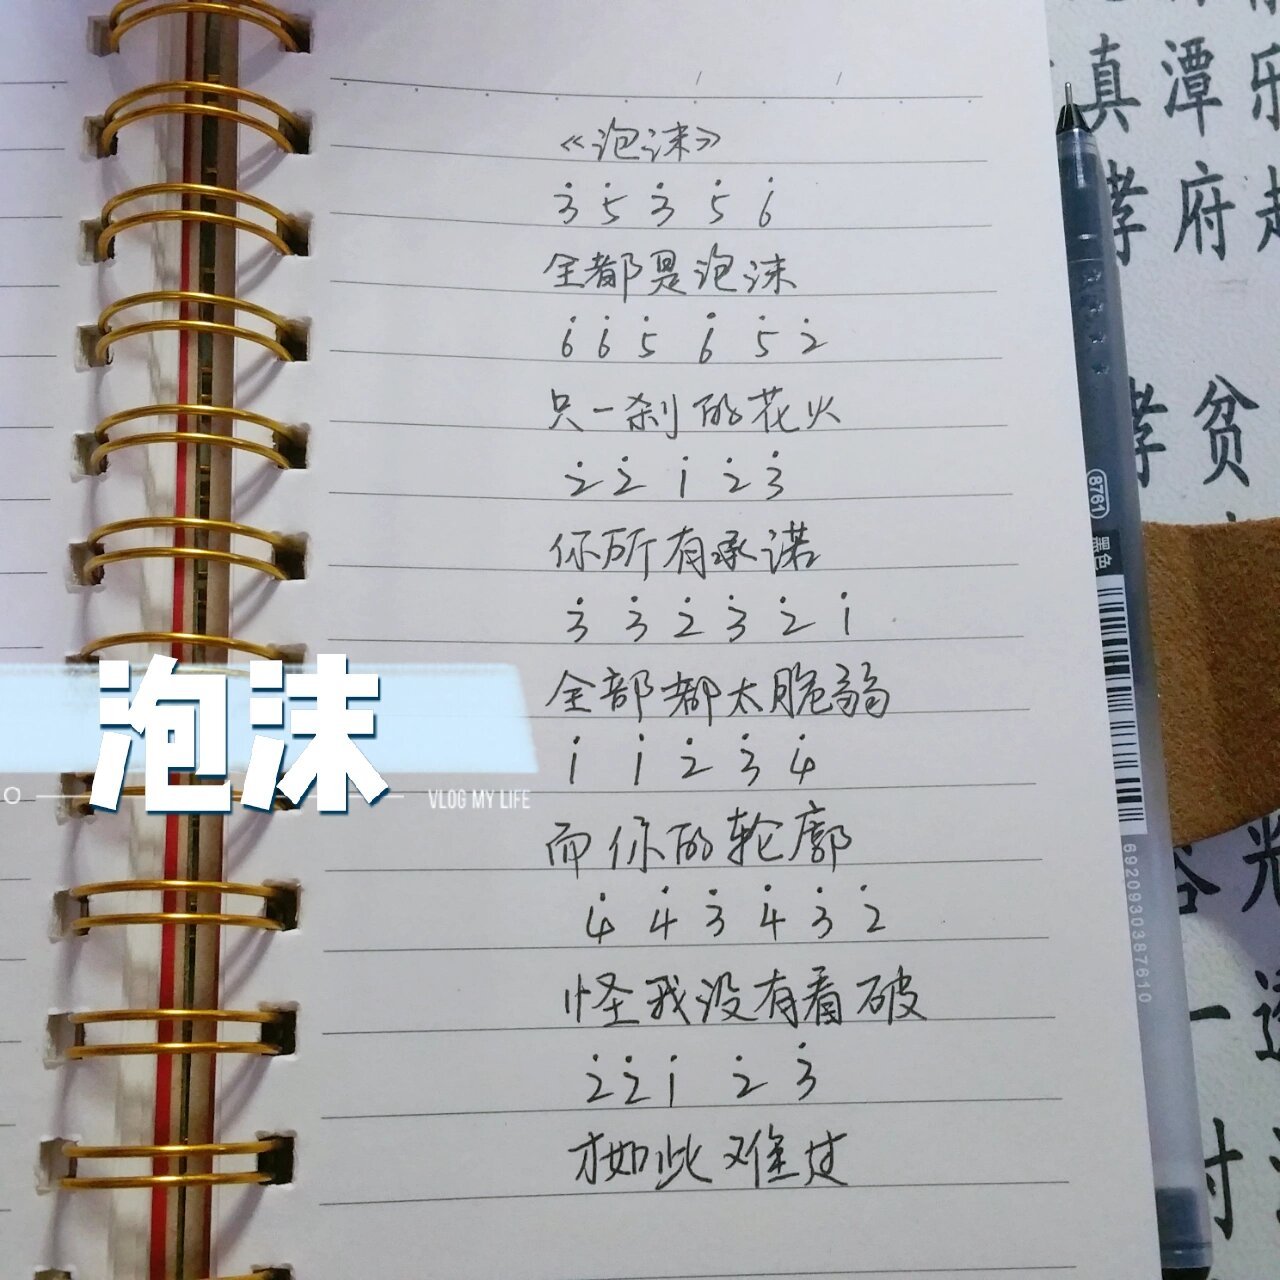 《泡沫》
3̇ 5̇ 3̇ 5̇ 6̇
全都是泡沫
6̇ 6̇ 5̇ 6̇ 5̇ 2̇
只一刹的花火
2̇ 2̇ 1̇ 2̇ 3̇
你所有承诺
3̇ 3̇ 2̇ 3̇ 2̇ 1̇
全部都太脆弱
1̇ 1̇ 2̇ 3̇ 4̇
而你的轮廓
4̇ 4̇ 3̇ 4̇ 3̇ 2̇
怪我没有看破
2̇ 2̇ 1̇ 2̇ 3̇
才如此难过
泡沫
VLOG MY LIFE
8761
黑色
6920930387610
真潭乐
孝府
孝贫
光
一